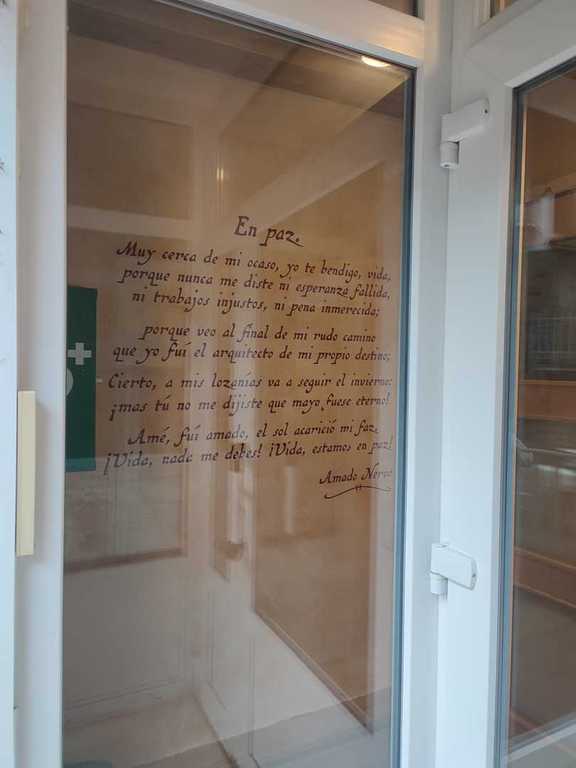 En paz.
Muy cerca de mi ocaso, yo te bendigo, vida,
porque nunca me diste ni esperanza fallida,
ni trabajos injustos, ni pena inmerecida;
porque veo al final de mi rudo camino
que yo fuí el arquitecto de mi propio destino;
Cierto, a mis lozanías va a seguir el invierno:
¡mas tú no me dijiste que mayo fuese eterno!
Amé, fuí amado, el sol acarició mi faz.
¡Vida, nada me debes! ¡Vida, estamos en paz!
Amado Nervo